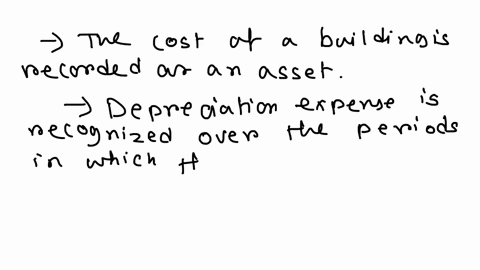 → The cost of a building is
recorded as an asset.
→ Depreciation expense is
recognized over the periods
in which t